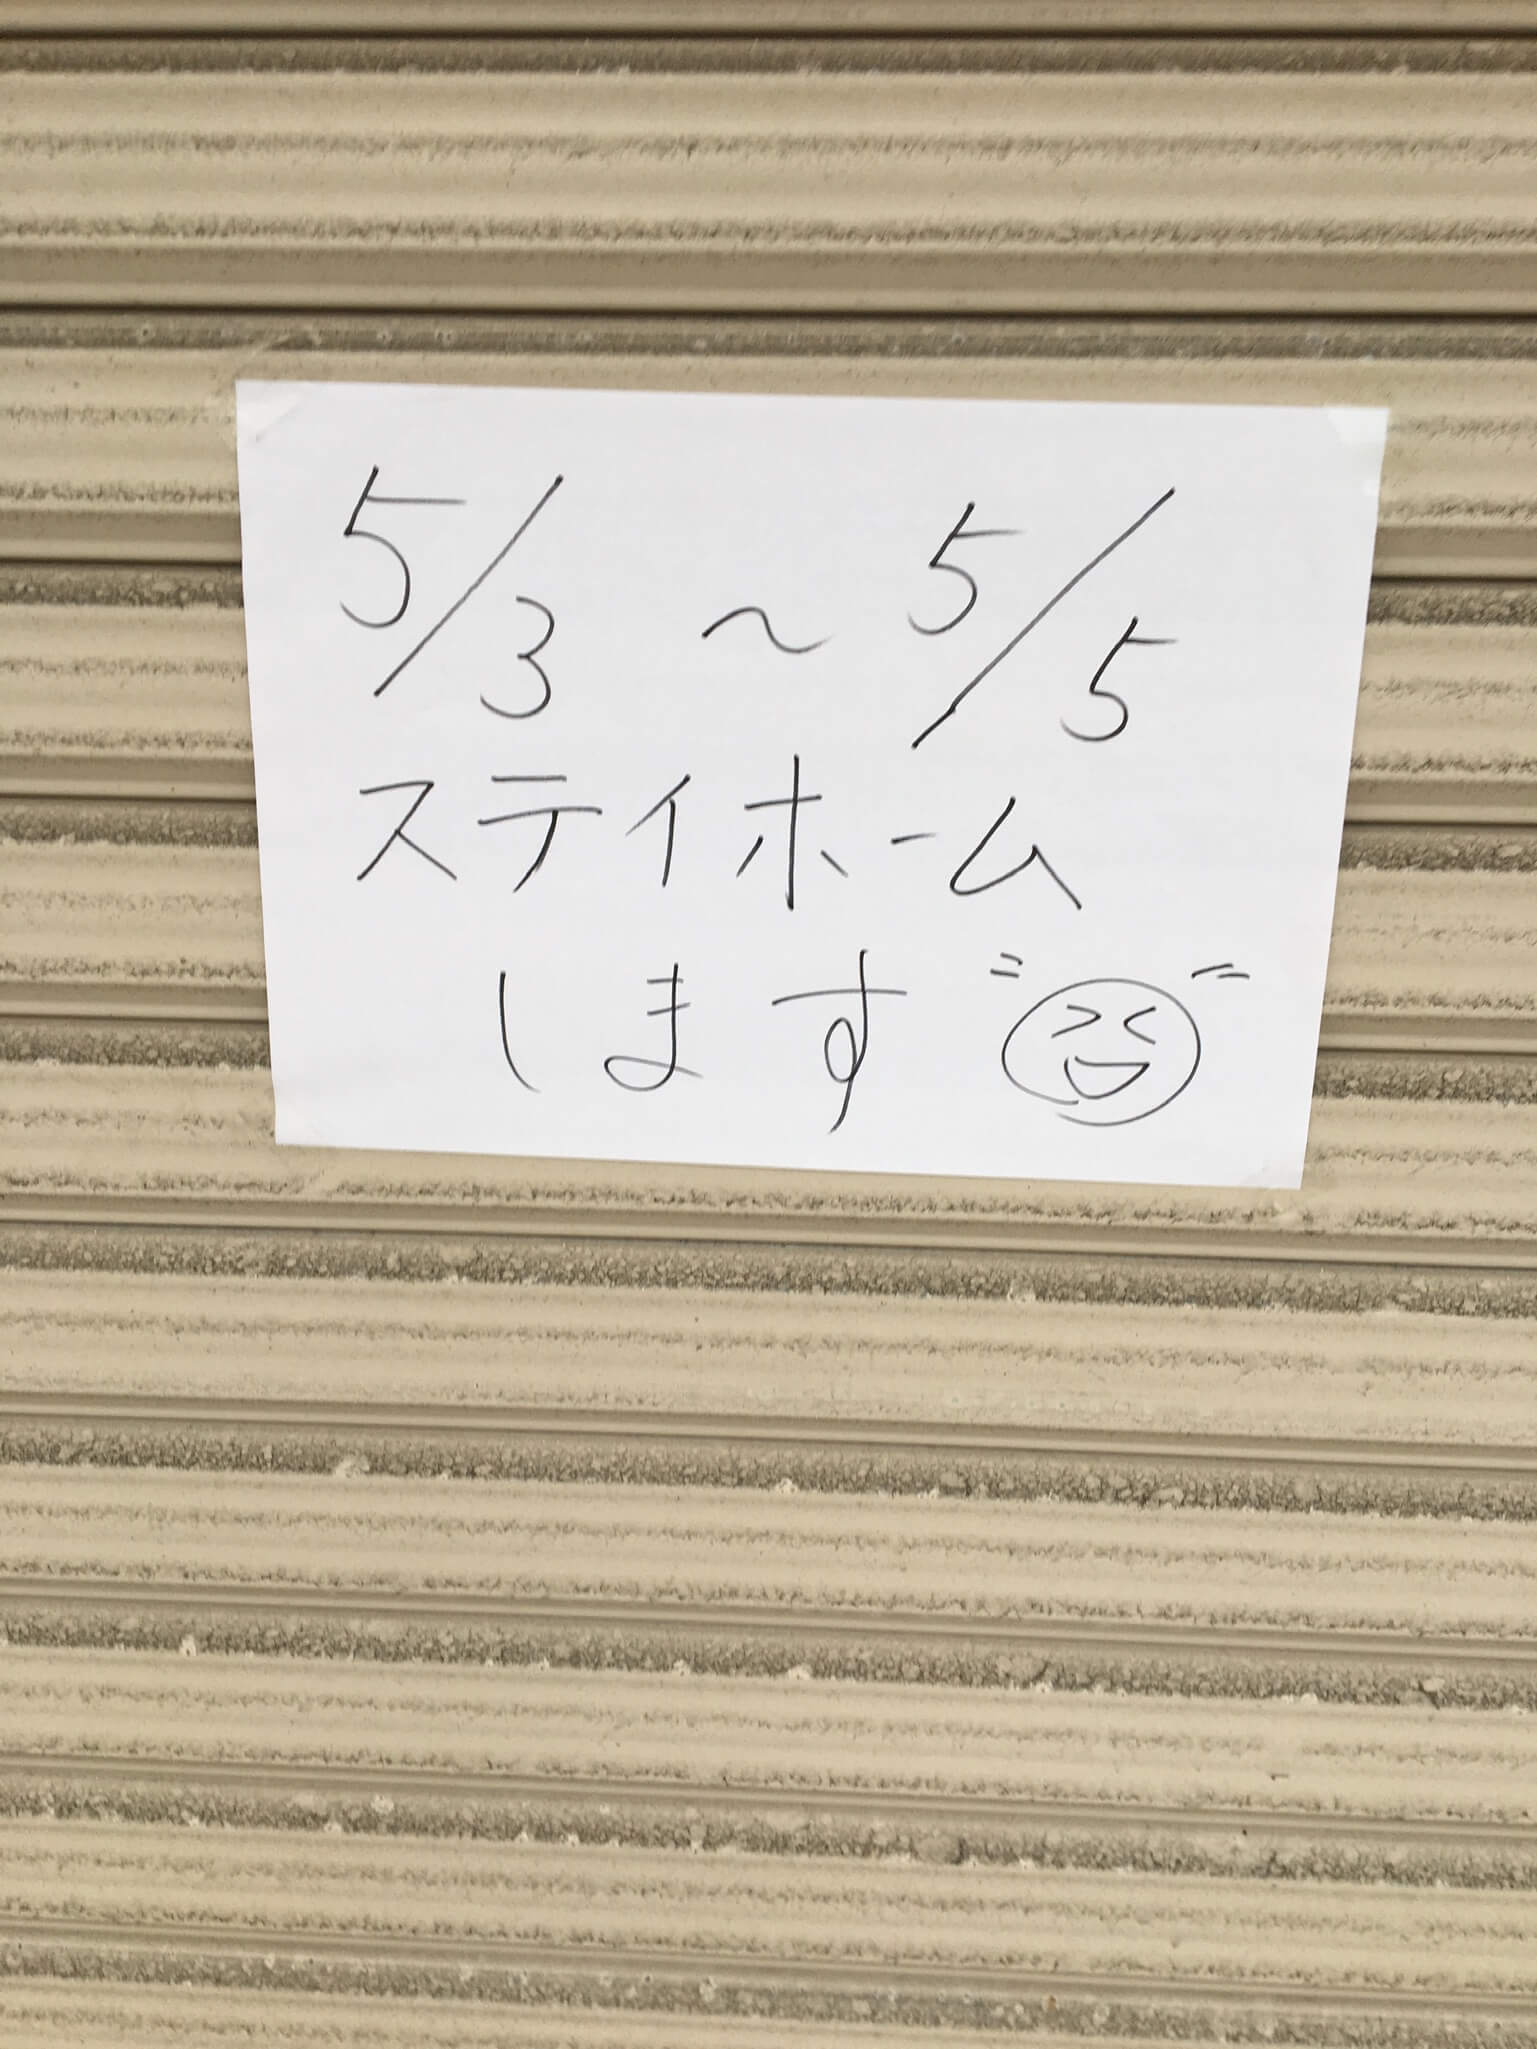 5/3 〜 5/5
ステイホーム
します